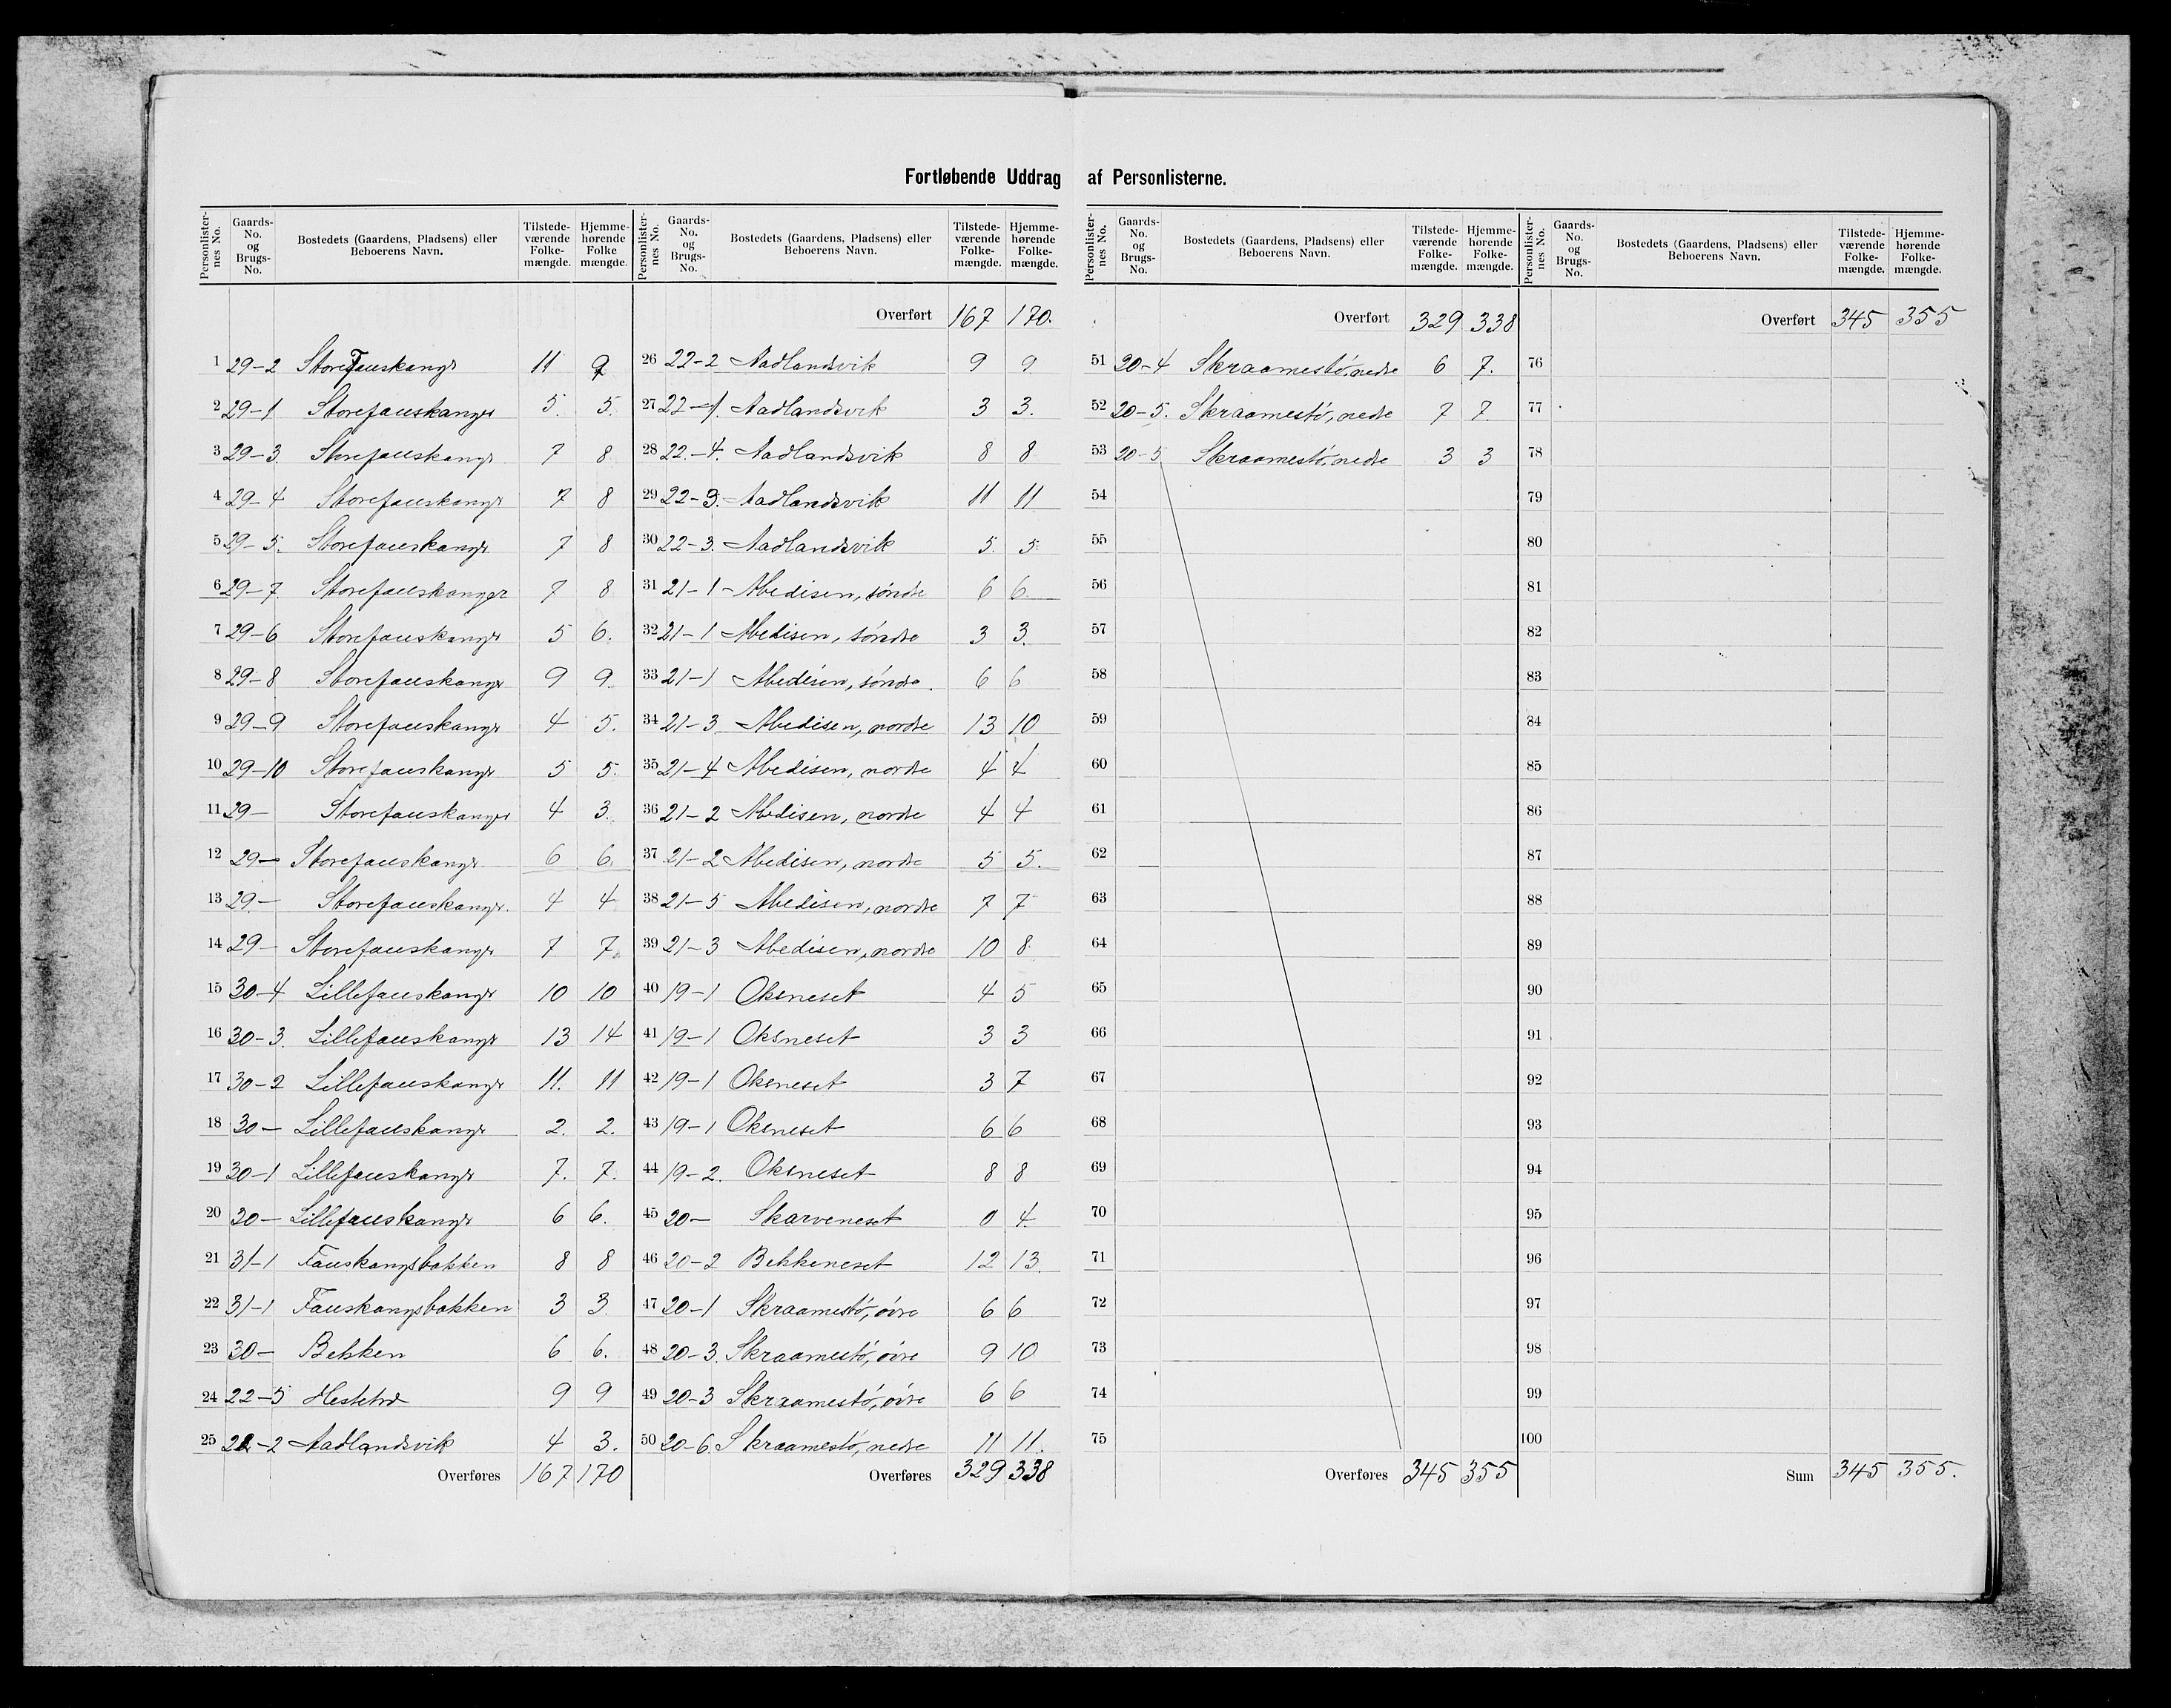 Fortløbende Uddrag af Personlisterne.
Personlister-nes No. Gaards-No. og Brugs-No. Bostedets (Gaardens, Pladsens) eller Beboerens Navn. Tilstede-værende Folke-mængde. Hjemme-hørende Folke mængde.
1 29-2 StoreFauskangr 11 9
2 29-1 Storefauskanger 5. 5.
3 29-3. Storefauskangr 7 8
4 29-4 Storefauskangr 7 8
5 29-5. Storefauskangr 7 8
6 29-7. Storefauskanger 7 8
7 29-6 Storefauskangr 5 6.
8 29-8 Storefauskangr 9 9.
9 29-9 Storefauskangr 4 5.
10 29-10 Storefauskangr 5 5.
11 29- Storefauskanger 4 3.
12 29- Storefauskangr 6 6.
13 29.- Storefauskangr. 4 4
14 29- Storefauskangr 7 7.
15 30-4 Lillefauskangr 10 10
16 30-3. Lillefauskangr 13 14
17 30-2 Lillefauskangr 11. 11
18 30- Lillefauskangr 2. 2.
19 30-1 Lillefauskangr 7. 7.
20 30- Lillefauskangr 6 6.
21 31-1 Fauskangsbakken 8 8
22 31-1 Fauskangsbakken 3 3.
23 30- Bekken 6 6.
24 22-5 9 9
25 22-2 Aadlandsvik 4 3.
Overføres 167 170
Personlister-nes No. Gaards-No. og Brugs-No. Bostedets (Gaardens, Pladsens) eller Beboerens Navn. Tilstede-værende Folke-mængde. Hjemme-hørende Folke-mængde.
Overført 167 170.
26 22-2 Aadlandsvik 9 9
27 22-1. Aadlandsvik 3 3.
28 22.-4. Aadlandsvik 8 8
29 22-3. Aadlandsvik 11 11
30 22-3. Aadlandsvik 5. 5.
31 21-1 Abedisen, søndre 6 6.
32 21-1 Abedisen, søndre 3 3.
33 21-1 Abedisen, søndre. 6 6
34 21-3 Abedisen, nordre 13 10
35 21-4 Abedisen, nordre 4 4
36 21-2 Abedisen, nordre 4 4
37 21-2 Abedisen, nordre 5 5.
38 21-5 Abedisen, nordre 7 7
39 21-3 Abedisen, nordre 10 8.
40 19-1 Oksneset 4 5
41 19-1 Oksneset 3 3
42 19-1 Oksneset 3 7
43 19-1 Oksneset 6 6
44 19-2. Oksneset 8 8
45 20- Skarveneset 0 4.
46 20-2 Bekkeneset 12 13.
47 20-1 Skraamestø, øvre 6 6
48 20-3. Skraamestø, øvre 9 10
49 20-3 Skraamestø, øvre 6 6
50 20-6. Skraamestø, nedre 11 11.
Overføres 329 338
Personlister-nes No. Gaards-No. og Brugs-No. Bostedets (Gaardens, Pladsens) eller Beboerens Navn. Tilstede-værende Folke-mængde. Hjemme-hørende Folke-mængde.
Overført 329 338
51 20-4 Skraamestø, nedre 6 7.
52 20-5. Skraamestø, nedre 7 7.
53 20-5 Skraamestø, nedre 3 3
54
55
56
57
58
59
60
61
62
63
64
65
66
67
68
69
70
71
72
73
74
75
Overføres 345 355
Personlister-nes No. Gaards-No. og Brugs-No. Bostedets (Gaardens, Pladsens) eller Beboerens Navn. Tilstede-værende Folke-mængde. Hjemme-hørende Folke-mængde.
Overført 345 355
76
77
78
79
80
81
82
83
84
85
86
87
88
89
90
91
92
93
94
95
96
97
98
99
100
Sum 345 355.